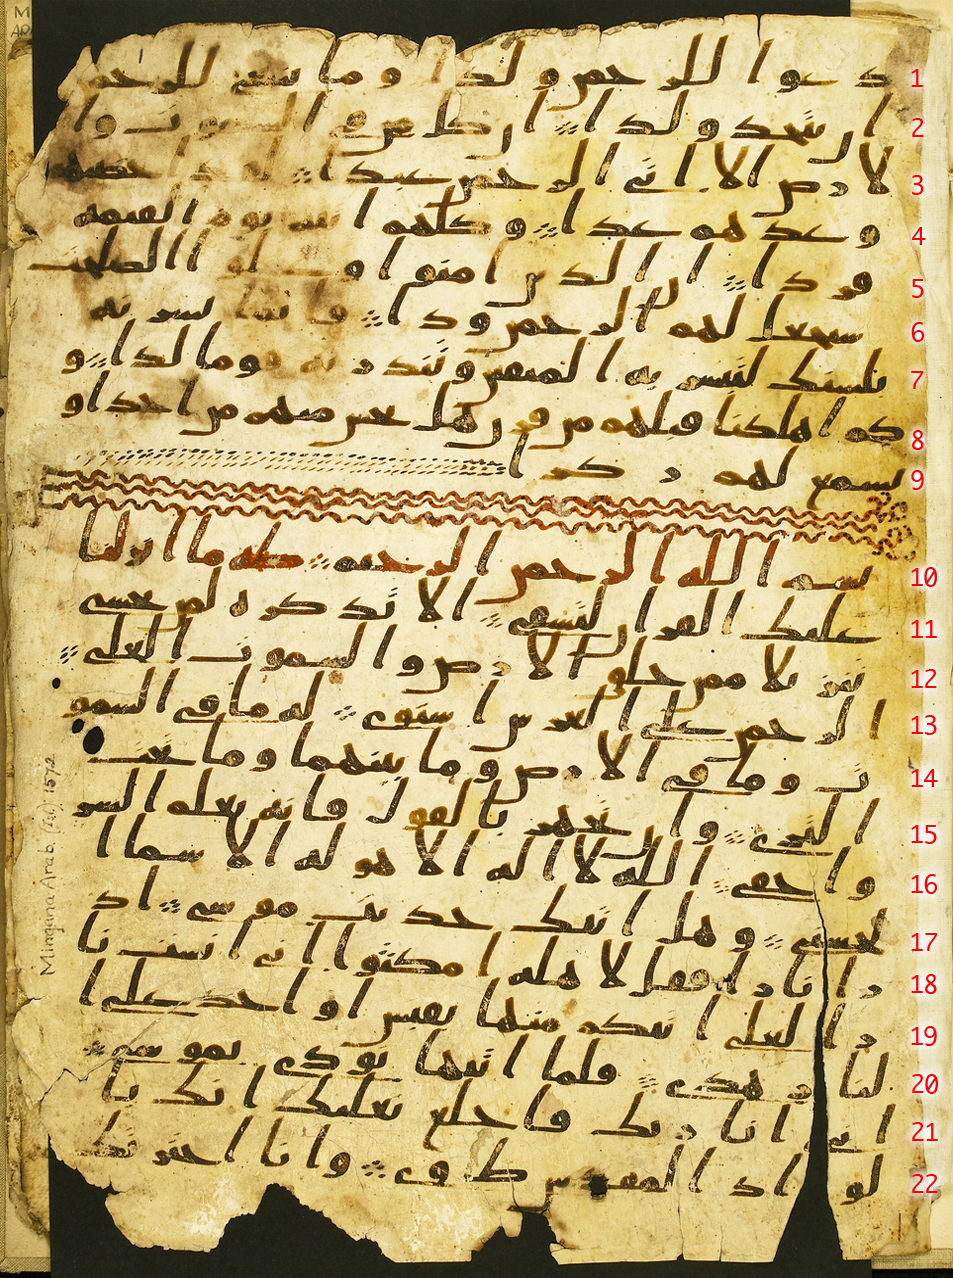 1 دعوا للرحمن ولدا وما ينبغي للرحمن
2 ان يتخذ ولدا ان كل من في السموت وا
3 لارض الا اتي الرحمن عبدا لقد احصيهم
4 وعدهم عدا وكلهم اتيه يوم القيمه
5 فردا ان الذين امنوا وعملوا الصلحت
6 سيجعل لهم الرحمن ودا فانما يسرنه
7 بلسنك لتبشر به المتقين وتنذر به قوما لدا و
8 كم اهلكنا قبلهم من قرن هل تحس منهم من احد او
9 تسمع لهم ركزا
10 بسم الله الرحمن الرحيم طه ما انزلنا
11 عليك القران لتشقى الا تذكره لمن يخشى
12 تنزيلا ممن خلق الارض والسموت العلى
13 الرحمن على العرش استوى له ما في السمو
14 ت وما في الارض وما بينهما وما تحت
15 الثرى وان تجهر بالقول فانه يعلم السر
16 واخفى الله لا اله الا هو له الاسما ا
17 لحسنى وهل اتيك حديث موسى اذ
18 را نارا فقل لاهله امكثوا اني انست نا
19 را لعلي اتيكم منها بقبس او اجد على ا
20 لنار هدى فلما اتيها نودي يموسى
21 اني انا ربك فاخلع نعليك انك با
22 لواد المقدس طوى وانا اخترتك
Mingana Arab. (Isl.) 1572